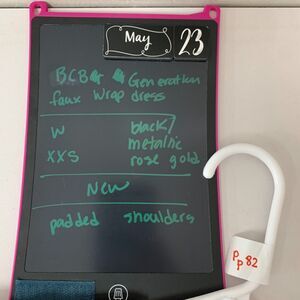 May 23
BCBG Generation
faux wrap dress
W black/
metallic
XXS rose gold
New
padded shoulders
Pp 82